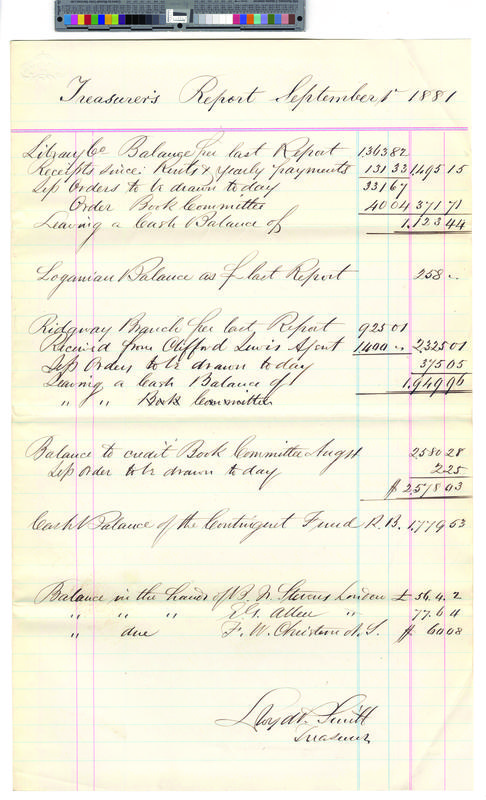 Treasurer's Report September 1st 1881
Library Co Balance per last Report 1,363 82
Receipts since: Rents & yearly payments 131 33 1,495 15
Less Orders to be drawn today 331 67
Order Book Committee 40 04 371 71
Leaving a Cash Balance of 1,123 44
Loganian Balance as pr last Report 258 "
Ridgway Branch per last Report 925 01
Received from Clifford Lewis Agent 1,400 " 2,325 01
Less Orders to be drawn today 375 05
Leaving a Cash Balance of 1,949 96
" " Book Committee
Balance to credit Book Committee Augst 2580 28
Less order to be drawn today 2 25
$ 2,578 03
Cash Balance of the Contingent Fund R. B. 1,779 53
Balance in the hands of B. F. Stevens London £ 56. 4. 2
" " " E. G. Allen " 77. 6 4
" due F. W. Christern N. Y. $ 60 08
Lloyd P. Smith
Treasurer